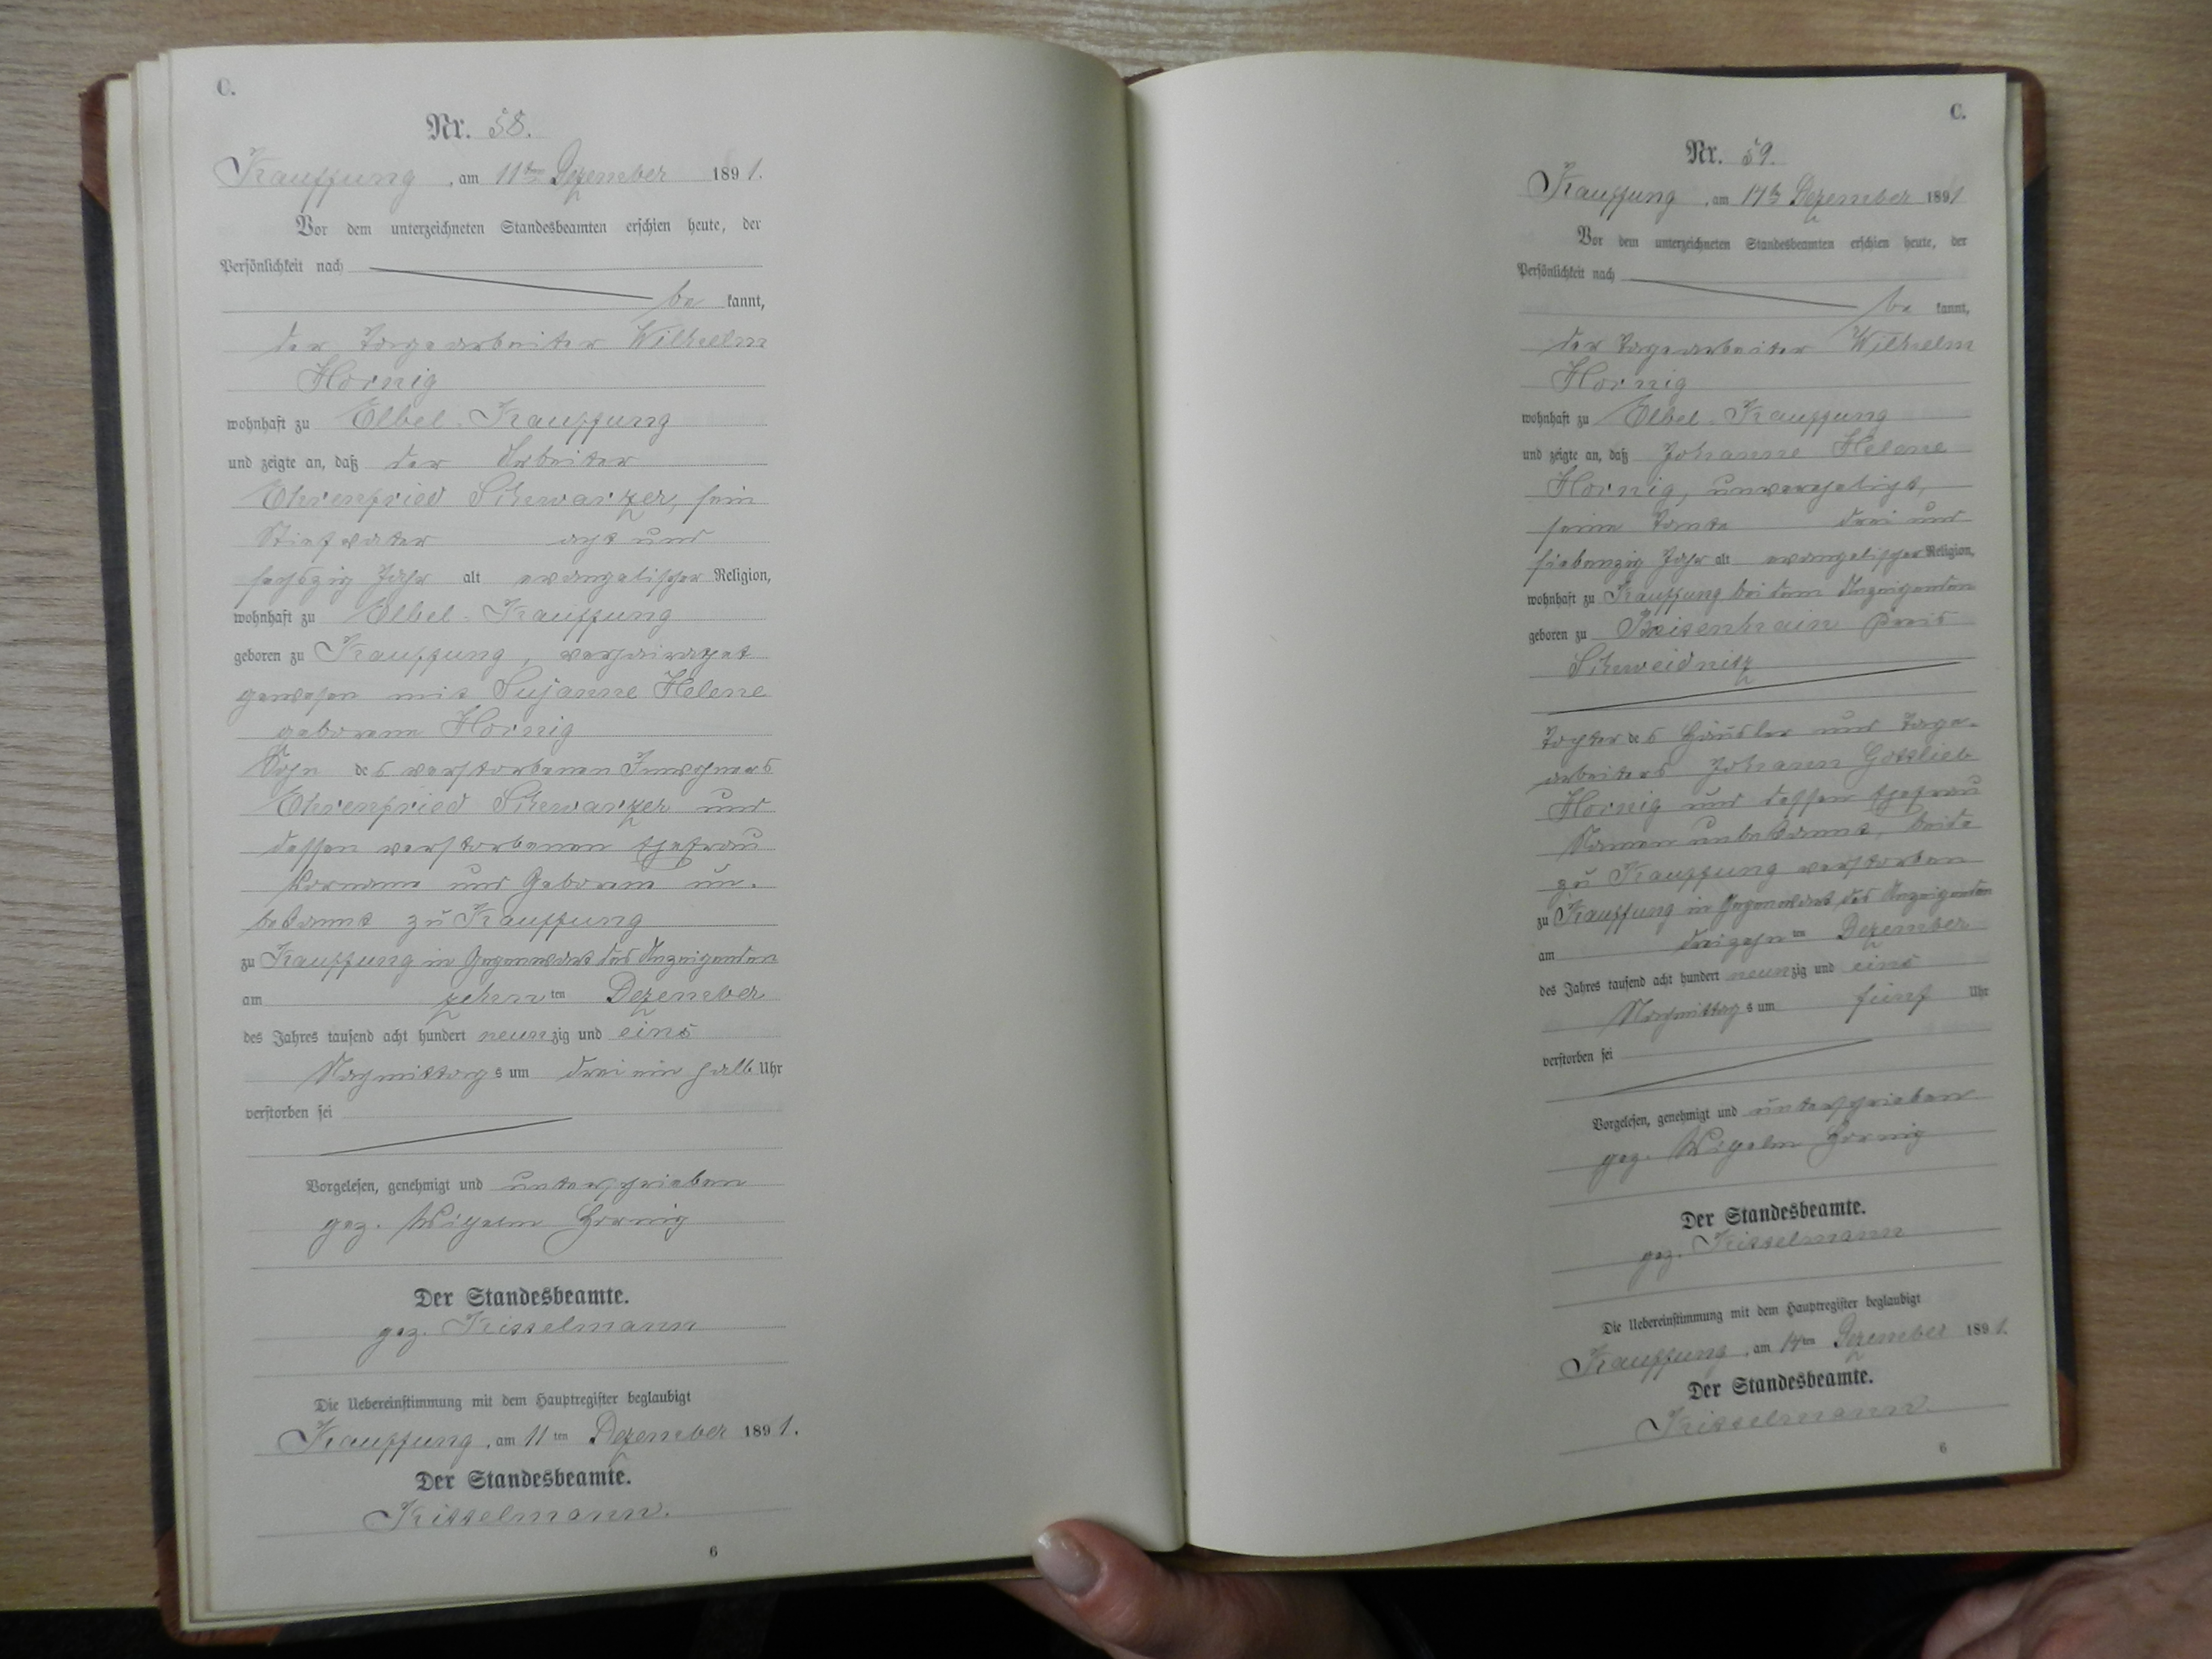 C.
Nr. 58.
Kauffung, am 11ten Dezember 1891.
Vor dem unterzeichneten Standesbeamten erschien heute, der
Persönlichkeit nach
bekannt,
der Tagearbeiter Wilhelm
Hornig
wohnhaft zu Elbel-Kauffung
und zeigte an, daß der Arbeiter
Ehrenfried Schwarzer, sein
Stiefvater acht und
sechszig Jahr alt evangelischer Religion,
wohnhaft zu Elbel-Kauffung
geboren zu Kauffung, verheirathet
gewesen mit Susanne Helene
geborene Hornig
Sohn des verstorbenen Inwohners
Ehrenfried Schwarzer und
dessen verstorbenen Ehefrau
Vorname und Geborene un-
bekannt zu Kauffung
zu Kauffung in Gegenwart des Anzeigenden
am zehnten Dezember
des Jahres tausend acht hundert neunzig und eins
Nachmittags um drei ein halb Uhr
verstorben sei
Vorgelesen, genehmigt und unterschrieben
gez. Wilhelm Hornig
Der Standesbeamte.
gez. Kisselmann
Die Uebereinstimmung mit dem Hauptregister beglaubigt
Kauffung, am 11ten Dezember 1891.
Der Standesbeamte.
Kisselmann.
6
C.
Nr. 59.
Kauffung, am 14ten Dezember 1891
Vor dem unterzeichneten Standesbeamten erschien heute, der
Persönlichkeit nach
bekannt,
der Tagearbeiter Wilhelm
Hornig
wohnhaft zu Elbel-Kauffung
und zeigte an, daß Johanne Helene
Hornig, unverehelicht,
seine Tante drei und
siebenzig Jahr alt evangelischer Religion,
wohnhaft zu Kauffung bei dem Anzeigenden
geboren zu Kreis
Schweidnitz
Tochter des Häusler und Tage-
arbeiters Johann Gottlieb
Hornig und dessen Ehefrau
Namen unbekannt, beide
zu Kauffung verstorben
zu Kauffung in Gegenwart des Anzeigenden
am dreizehnten Dezember
des Jahres tausend acht hundert neunzig und eins
Nachmittags um fünf Uhr
verstorben sei
Vorgelesen, genehmigt und unterschrieben
gez. Wilhelm Hornig
Der Standesbeamte.
gez. Kisselmann
Die Uebereinstimmung mit dem Hauptregister beglaubigt
Kauffung, am 14ten Dezember 1891.
Der Standesbeamte.
Kisselmann.
6